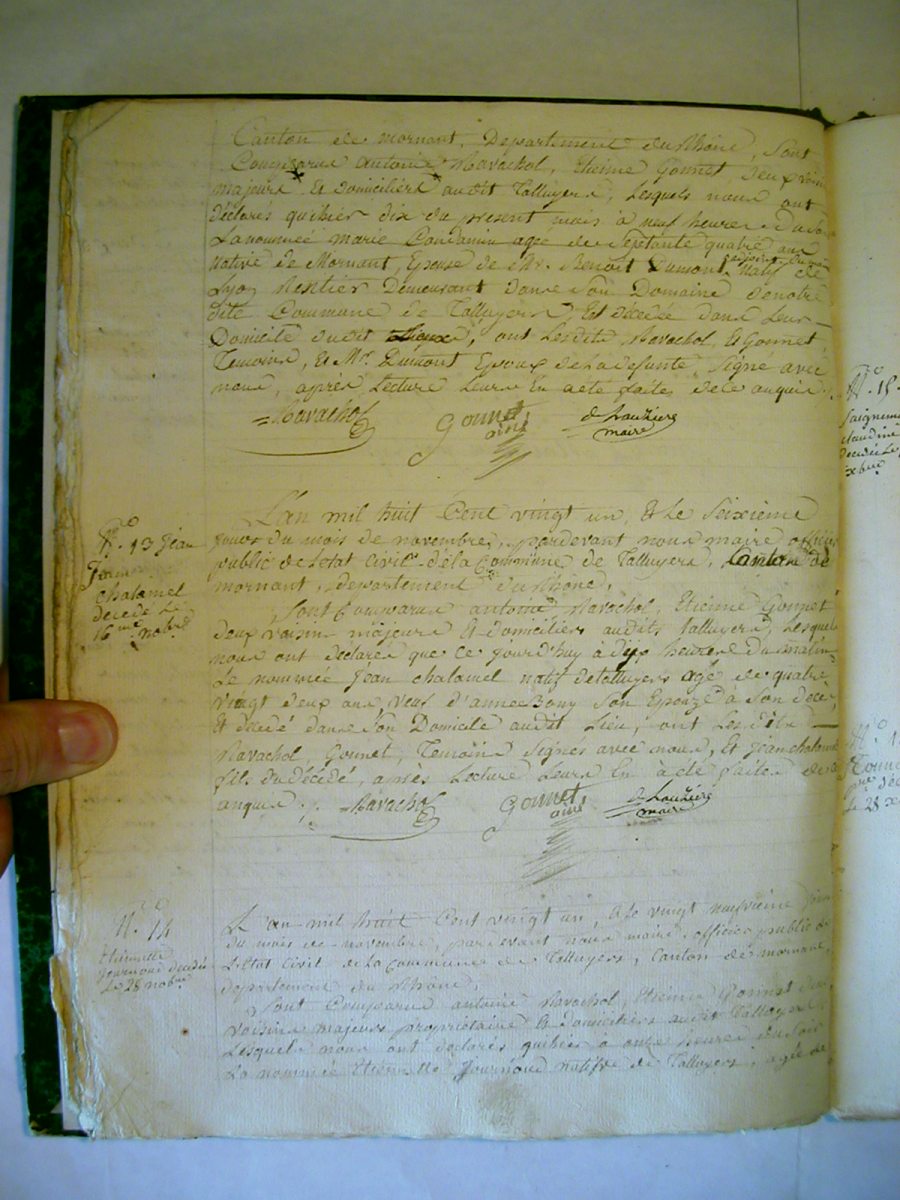 Canton de mornant, Departement du Rhône, Sont
Comparus antoine Ravachol, Etienne Gonnet deux voisins
majeurs Et domiciliers audit Talluyers, Lesquels nous ont
déclarés qu'hier dix du present mois à neuf heures du soir
La nommée marie Condamin agée de Septante quatre ans
native de Mornant, Epouse de Mr. Benoit Dumont Natif de
Lyon Rentier Demeurant dans son Domaine de notre
dite Commune de Talluyers, Est décédé dans Leur
Domicile dudit, ont Lesdits Ravachol, Et Gonnet
Temoins, Et Mr. Dumont Epoux de La defunte, Signé avec
nous, après Lecture Leurs En a eté faites de ce enquis.
Ravachol Gonnet ainé maire
N°. 13 Jean
Jean
chalamel
decédé Le
16me. nobre
L'an mil huit Cent vingt un, Et Le Seixième
jours du mois de novembre, pardevant nous maire officier
public de Letat Civil de la Commune de Talluyers, Canton de
mornant, departement du Rhône,
Sont Comparus antoine Ravachol, Etienne Gonnet
deux voisins majeurs Et domiciliers audits Talluyers, Lesquels
nous ont déclarés que Ce jourd'huy à dix heures du matin
Le nommée Jean chalamel natif de talluyers agé de quatre
vingt deux ans veuf d'anne Bony Son Epouze à Son décè
Et décédé dans Son Domicile audit Lieu, ont Les dits
Ravachol, Gonnet, Temoins Signés avec nous, Et Jean chalamel
fils du décédé, après Lecture Leurs En à eté faites de ce
enquis. Ravachol Gonnet ainé maire
N°. 14
Etiennette
Journoud decédée
Le 28 nobre
L'an mil huit Cent vingt un, Et le vingt neufvième jour
du mois de novembre, pardevant nous maire officier public de
L'Etat Civil de La Commune de Talluyers, Canton de mornant,
departement du Rhône,
Sont Comparus antoine Ravachol, Etienne Gonnet deux
voisins majeurs propriétaire Et domiciliers audit Talluyers,
Lesquels nous ont déclarés qu'hier à onze heures du soir
La nommée Etiennette Journoud natifve de Talluyers, agée de
N°. 15
claudine
decédé Le
xbre